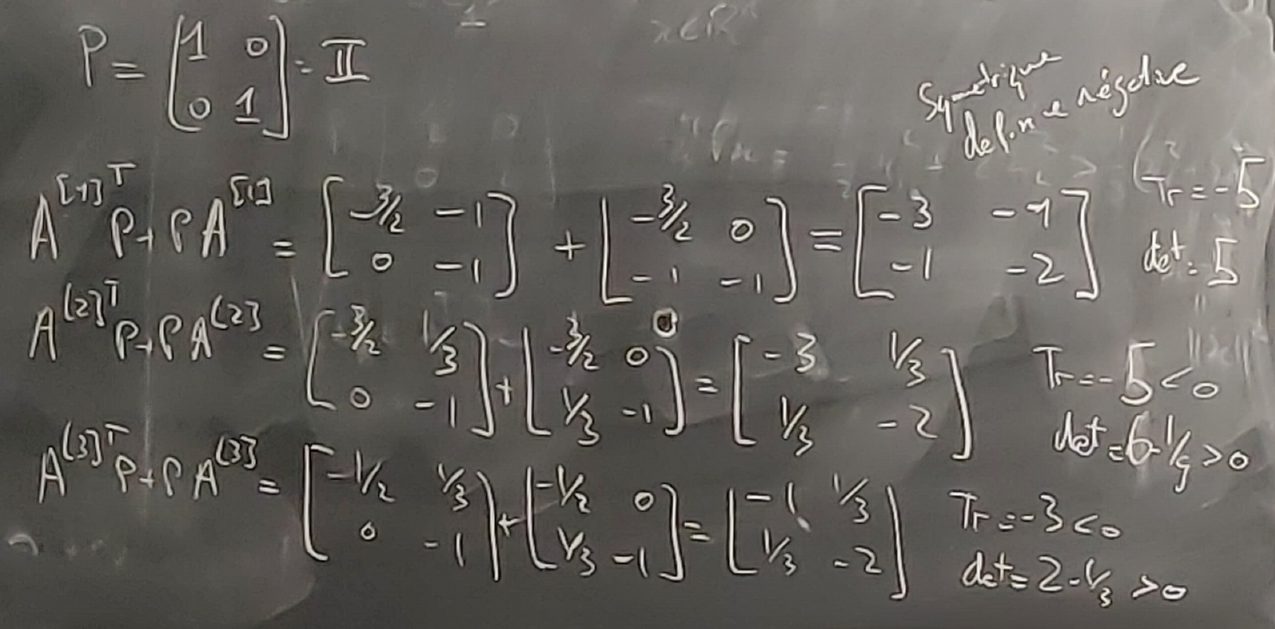 x∈ℝ
P = [1 0; 0 1] = II
Symetrique
define négative
A^[1]^T P + P A^[1] = [-3/2 -1; 0 -1] + [-3/2 0; -1 -1] = [-3 -1; -1 -2] Tr = -5 det = 5
A^[2]^T P + P A^[2] = [-3/2 1/3; 0 -1] + [-3/2 0; 1/3 -1] = [-3 1/3; 1/3 -2] Tr = -5 < 0 det = 6 - 1/9 > 0
A^[3]^T P + P A^[3] = [-1/2 1/3; 0 -1] + [-1/2 0; 1/3 -1] = [-1 1/3; 1/3 -2] Tr = -3 < 0 det = 2 - 1/3 > 0